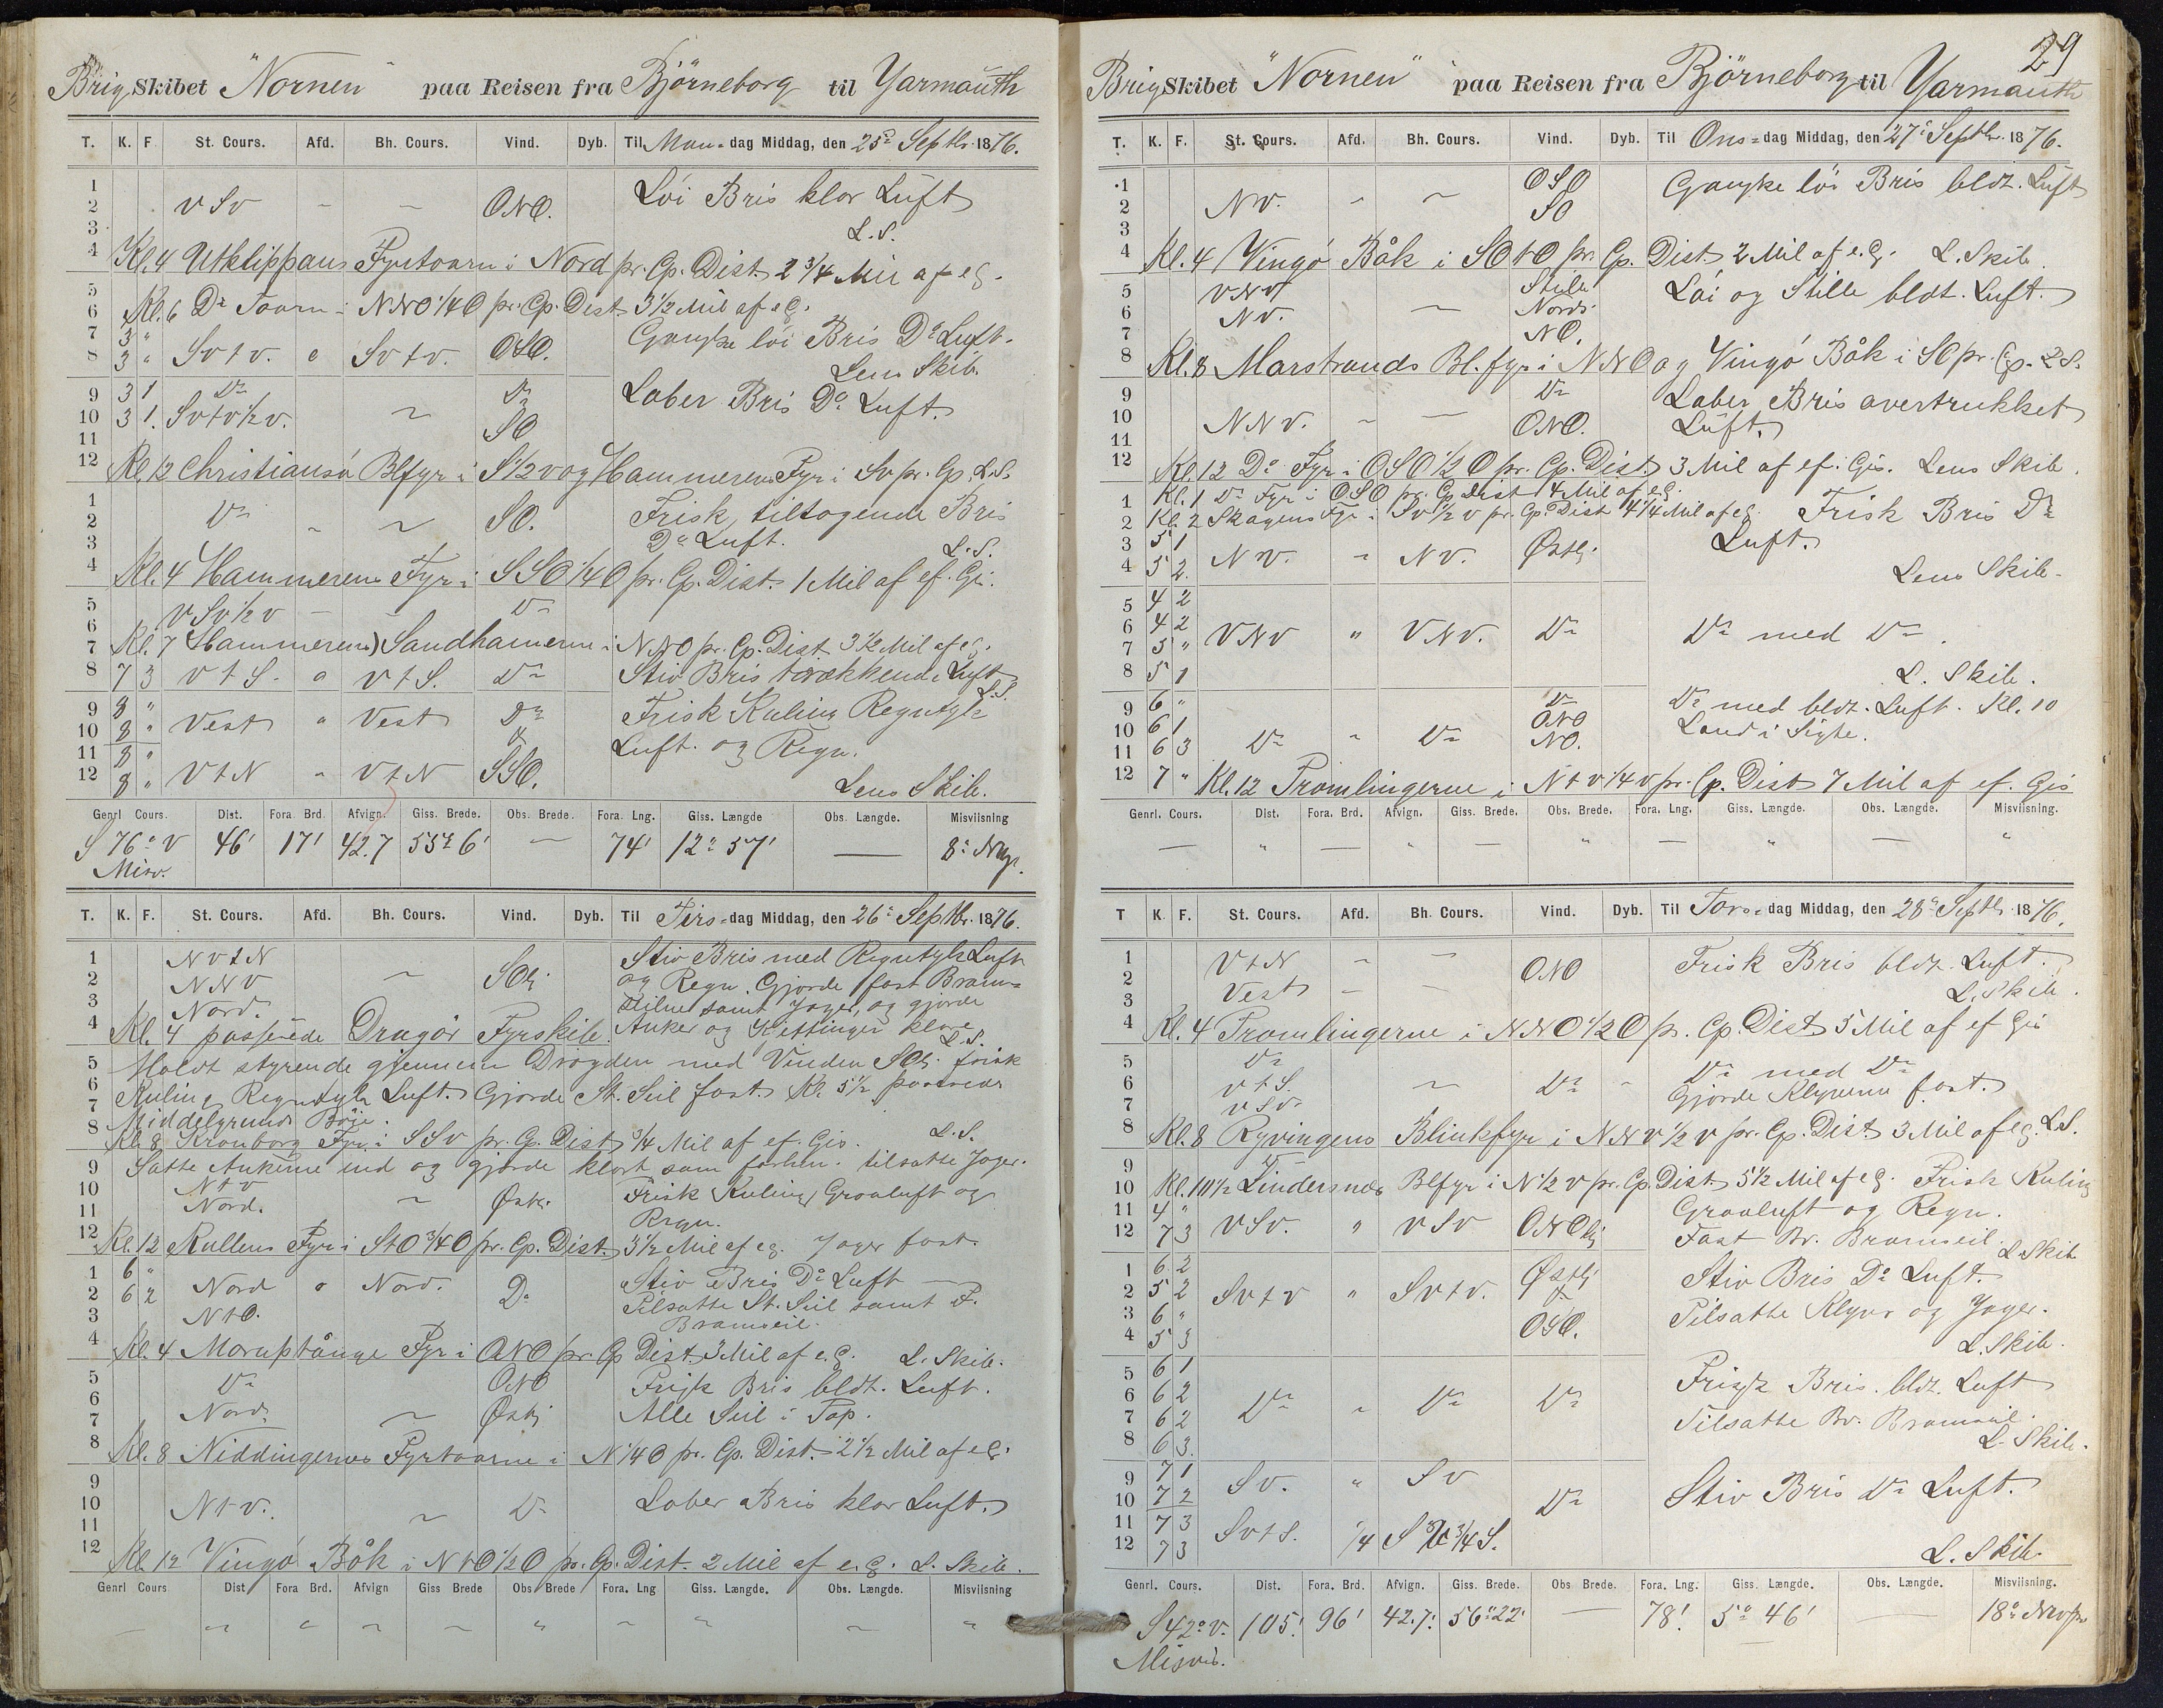 Brig Skibet "Nornen" paa Reisen fra Björneborg til Yarmouth
T. K. F. St. Cours. Afd. Bh. Cours. Vind. Dyb. Til Man-dag Middag, den 25de Septbr. 1876.
1
2 VSV – – ONO. Löi Bris klar Luft
3 L.S.
4 Kl. 4 Utklippans Fyrtaarn i Nord pr. Cp. Dist. 2 3/4 Mil af e G.
5
6 Kl. 6 Do Taarn i NNO 1/4 O pr. Cp. Dist. 3 1/2 Mil af e G.
7 3 " Ganske löi Bris Do Luft.
8 3 " SvtV. o SvtV. OSO. Lens Skib.
9 3 1 Do Do Laber Bris Do Luft.
10 3 1. SvtV 1/2 V. ~ SO
11
12 Kl. 12 Christiansö Blfyr i S 1/2 V og Hammerens Fyr i SV pr. Cp. L.S.
1
2 Do " ~ SO. Frisk, tiltagende Bris
3 Do Luft. L.S.
4 Kl. 4 Hammerens Fyr i SSO 1/4 O pr. Cp. Dist. 1 Mil af ef. Gis.
5
6 VSV 1/2 V – Do
7 Kl. 7 (Hammerens) Sandhamern i NNO pr. Cp. Dist. 3 1/2 Mil af e G.
8 7 3 VtS. o VtS. Do Stiv Bris Luft
L.S.
9 8 " Vest " Vest Do Frisk Kuling Regntyk
10 8 " & Luft. og Regn.
11 8 "
12 8 " VtN " VtN SSO. Lens Skib.
Genrl Cours. Dist. Fora Brd. Afvign. Giss. Brede. Obs. Brede. Fora. Lng. Giss. Længde Obs. Længde. Misviisning
S 76° V 46' 17' 42.7 55° 6' — 74' 12° 57' — 8°
Misv.
T. K. F. St. Cours. Afd. Bh. Cours. Vind. Dyb. Til Tirs-dag Middag, den 26de Septbr. 1876.
1 NVtN Stiv Bris med Regntyk Luft
2 NNV ~ SOlig og Regn. Gjorde fast Bram-
3 Nord. seilene samt Jager, og gjorde
4 Kl. 4 passerede Dragör Fyrskib. Anker og Kjettinger klare
L.S.
5 Holdt styrende gjennem Drogden med Vinden SOlig frisk
6 Kuling Regntyk Luft. Gjorde St. Seil fast. Kl. 5 1/2 passerede
7 Middelgrunds Böie.
8 Kl. 8 Kronborg Fyr i SSV pr. Cp. Dist. 3/4 Mil af ef. Gis. L.S.
9 Satte Ankerne ind og gjorde klart som forhen. tilsatte Jager.
10 NtV
11 Nord. ~ Østlig Frisk Kuling Graaluft og
Regn.
12 Kl. 12 Kullens Fyr i StO 3/4 O pr. Cp. Dist. 3 1/2 Mil af e G. Jager fast.
1 6 " Stiv Bris Do Luft
2 6 2 Nord o Nord. Do Tilsatte St. Seil samt F.
3 NtO. Bramseil.
4 Kl. 4 Moruptånge Fyr i ONO pr. Cp Dist. 3 Mil af e. G. L. Skib.
5 Do ONO Frisk Bris bldt. Luft.
6
7 Nord. ~ Østlig Alle Seil i Top.
8 Kl. 8 Niddingernes Fyrtaarne i N 1/4 O pr. Cp. Dist. 2 1/2 Mil af e G.
9
10 NtV. ~ Do Laber Bris klar Luft.
11
12 Kl. 12 Vingö Båk i NtO 1/2 O pr. Cp. Dist. 2 Mil af e. G. L. Skib.
Genrl Cours Dist. Fora Brd. Afvign Giss Brede Obs Brede Fora. Lng Giss. Længde. Obs. Længde. Misviisning
29
Brig Skibet "Nornen" paa Reisen fra Björneborg til Yarmouth
T. K. F. St. Cours. Afd. Bh. Cours. Vind. Dyb. Til Ons-dag Middag, den 27de Septbr. 1876.
1 OSO Ganske löi Bris bldt. Luft
2 NV. " ~ SO
3
4 Kl. 4 Vingö Båk i SOtO pr. Cp. Dist. 2 Mil af e. G. L. Skib.
5 VNV Stille Löi og Stille bldt. Luft.
6 NV. – Nords.
7 NO.
8 Kl. 8 Marstrands Bl. fyr i NNO og Vingö Båk i SO pr. Cp. L.S.
9 Do Laber Bris overtrukket
10 NNV. – – ONO. Luft.
11
12 Kl. 12 Do Fyr i OSO 1/2 O pr. Cp. Dist. 3 Mil af ef. Gis. Lens Skib.
1 Kl. 1 Do Fyr i OSO pr. Cp Dist 4 Mil af e G.
2 Kl. 2 Skagens Fyr i SV 1/2 V pr. Cp. Dist 4 1/4 Mil af e G. Frisk Bris Do
3 5 1 NV. " NV. Østlig Luft.
4 5 2. Lens Skib.
5 4 2
6 4 2 VNV " VNV. Do Do med Do.
7 5 "
8 5 1 L. Skib.
9 6 " Do Do med bldt. Luft. Kl. 10
10 6 1 ONO Land i Sigte.
11 6 3 Do " Do NO.
12 7 " Kl. 12 Tromlingerne i NtV 1/4 V pr. Cp. Dist 7 Mil af ef. Gis
Genrl. Cours. Dist. Fora. Brd. Afvign. Giss. Brede. Obs. Brede. Fora. Lng. Giss. Længde. Obs. Længde. Misviisning.
T K. F. St. Cours. Afd. Bh. Cours. Vind. Dyb. Til Tors-dag Middag, den 28de Septbr. 1876.
1 VtN – – ONO Frisk Bris bldt. Luft.
2 Vest – –
3 L. Skib.
4 Kl. 4 Tromlingerne i NNO 1/2 O pr. Cp. Dist 5 Mil af ef Gis
5 Do Do med Do
6 VtS. ~ Do Gjorde Klyveren fast.
7 VSV.
8 Kl. 8 Ryvingens Blinkfyr i NNV 1/2 V pr. Cp. Dist. 3 Mil af e G. L.S.
9 Do
10 Kl. 10 1/2 Lindersnæs Blfyr i N 1/2 V pr. Cp. Dist. 5 1/2 Mil af e G. Frisk Kuling
11 4 " Graaluft og Regn.
12 7 3 VSV. " VSV ONOlig Fast Br. Bramseil. L Skib
1 6 2 Østlig Stiv Bris Do Luft.
2 5 2 SvtV " SvtV. &
3 6 " Tilsatte Klyver og Jager.
4 5 3 OSO. L. Skib.
5 6 1 Frisk Bris. bldt. Luft
6 6 2 Do " Do Do
7 6 2 Tilsatte Br. Bramseil.
8 6 3. L. Skib.
9 7 1 SV. " SV
10 7 2 Do Stiv Bris Do Luft.
11 7 3 SvtS. 1/4 SV 3/4 S.
12 7 3 L. Skib.
Genrl. Cours. Dist. Fora. Brd. Afvign. Giss. Brede. Obs Brede. Fora. Lng. Giss. Længde. Obs. Længde. Misviisning.
S 42° V. 105' 96' 42.7' 56° 22' — 78' 5° 46' — 18°
Misvis.